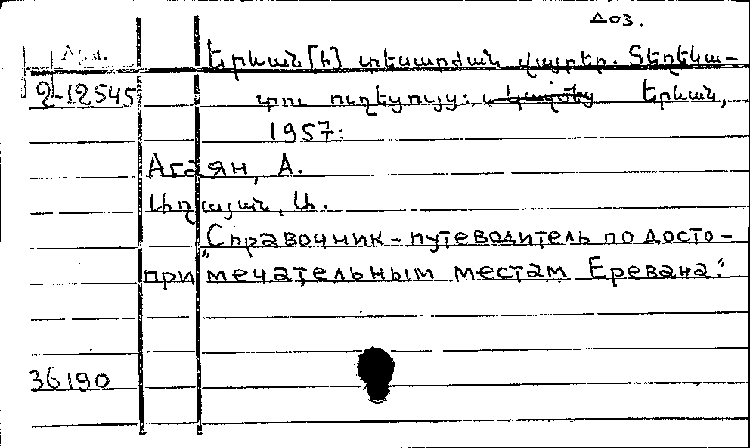 Доз.
Арм. Երևան[ի] տեսարժան վայրեր. Տեղեկա-
2-12545 տու ուղեցույց: Երևան,
1957:
Агаян, А.
Աղայան, Ա.
"Справочник-путеводитель по досто-
примечательным местам Еревана."
36190